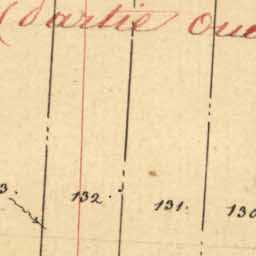 (Partie Oue
3. 132. 131. 130